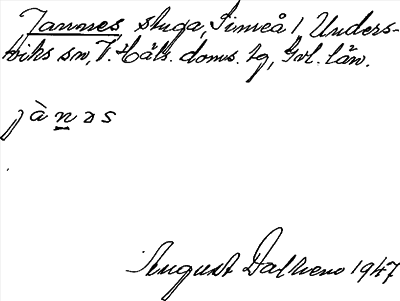 Jannes stuga, Simeå 1 Unders-
viks sn, V. Häls. doms. tg, Gvl. län.
jànǝs
August Dalhem 1947